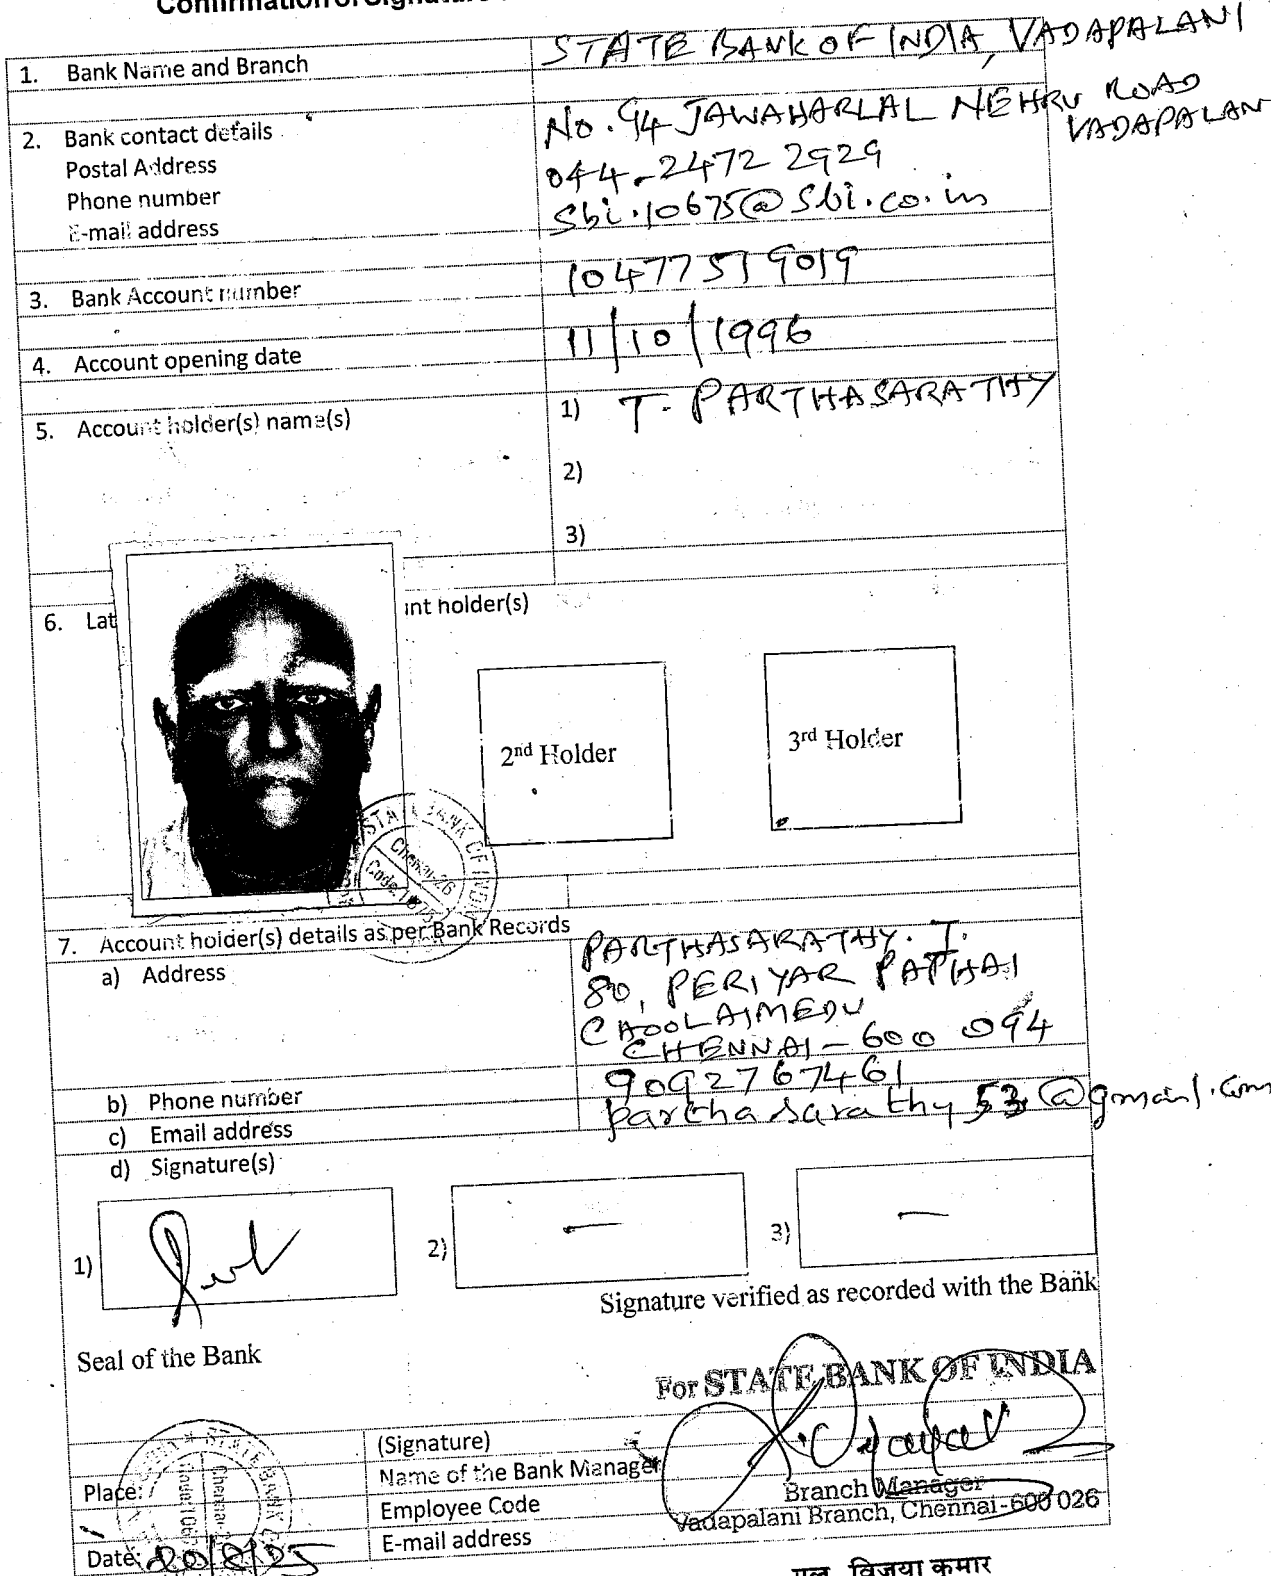 Confirmation of Signature
1. Bank Name and Branch
STATE BANK OF INDIA, VADAPALANI
2. Bank contact details
Postal Address
Phone number
E-mail address
No. 94 JAWAHARLAL NEHRU ROAD
VADAPALAN
044-2472 2929
Sbi.10675@sbi.co.in
3. Bank Account number
10477519019
4. Account opening date
11/10/1996
5. Account holder(s) name(s)
1) T. PARTHASARATHY
2)
3)
6. Lat
int holder(s)
2nd Holder
3rd Holder
STATE BANK OF INDIA
Chennai-26
7. Account holder(s) details as per Bank Records
a) Address
PARTHASARATHY. T.
80, PERIYAR PATHAI
CHOOLAIMEDU
CHENNAI - 600 094
b) Phone number
9092767461
c) Email address
parthasarathy53@gmail.com
d) Signature(s)
1)
2) —
3) —
Signature verified as recorded with the Bank
Seal of the Bank
For STATE BANK OF INDIA
(Signature)
Name of the Bank Manager
Employee Code
E-mail address
Branch Manager
Vadapalani Branch, Chennai-600 026
Place:
Date: 20/8/25
STATE BANK
एल. विजया कुमार